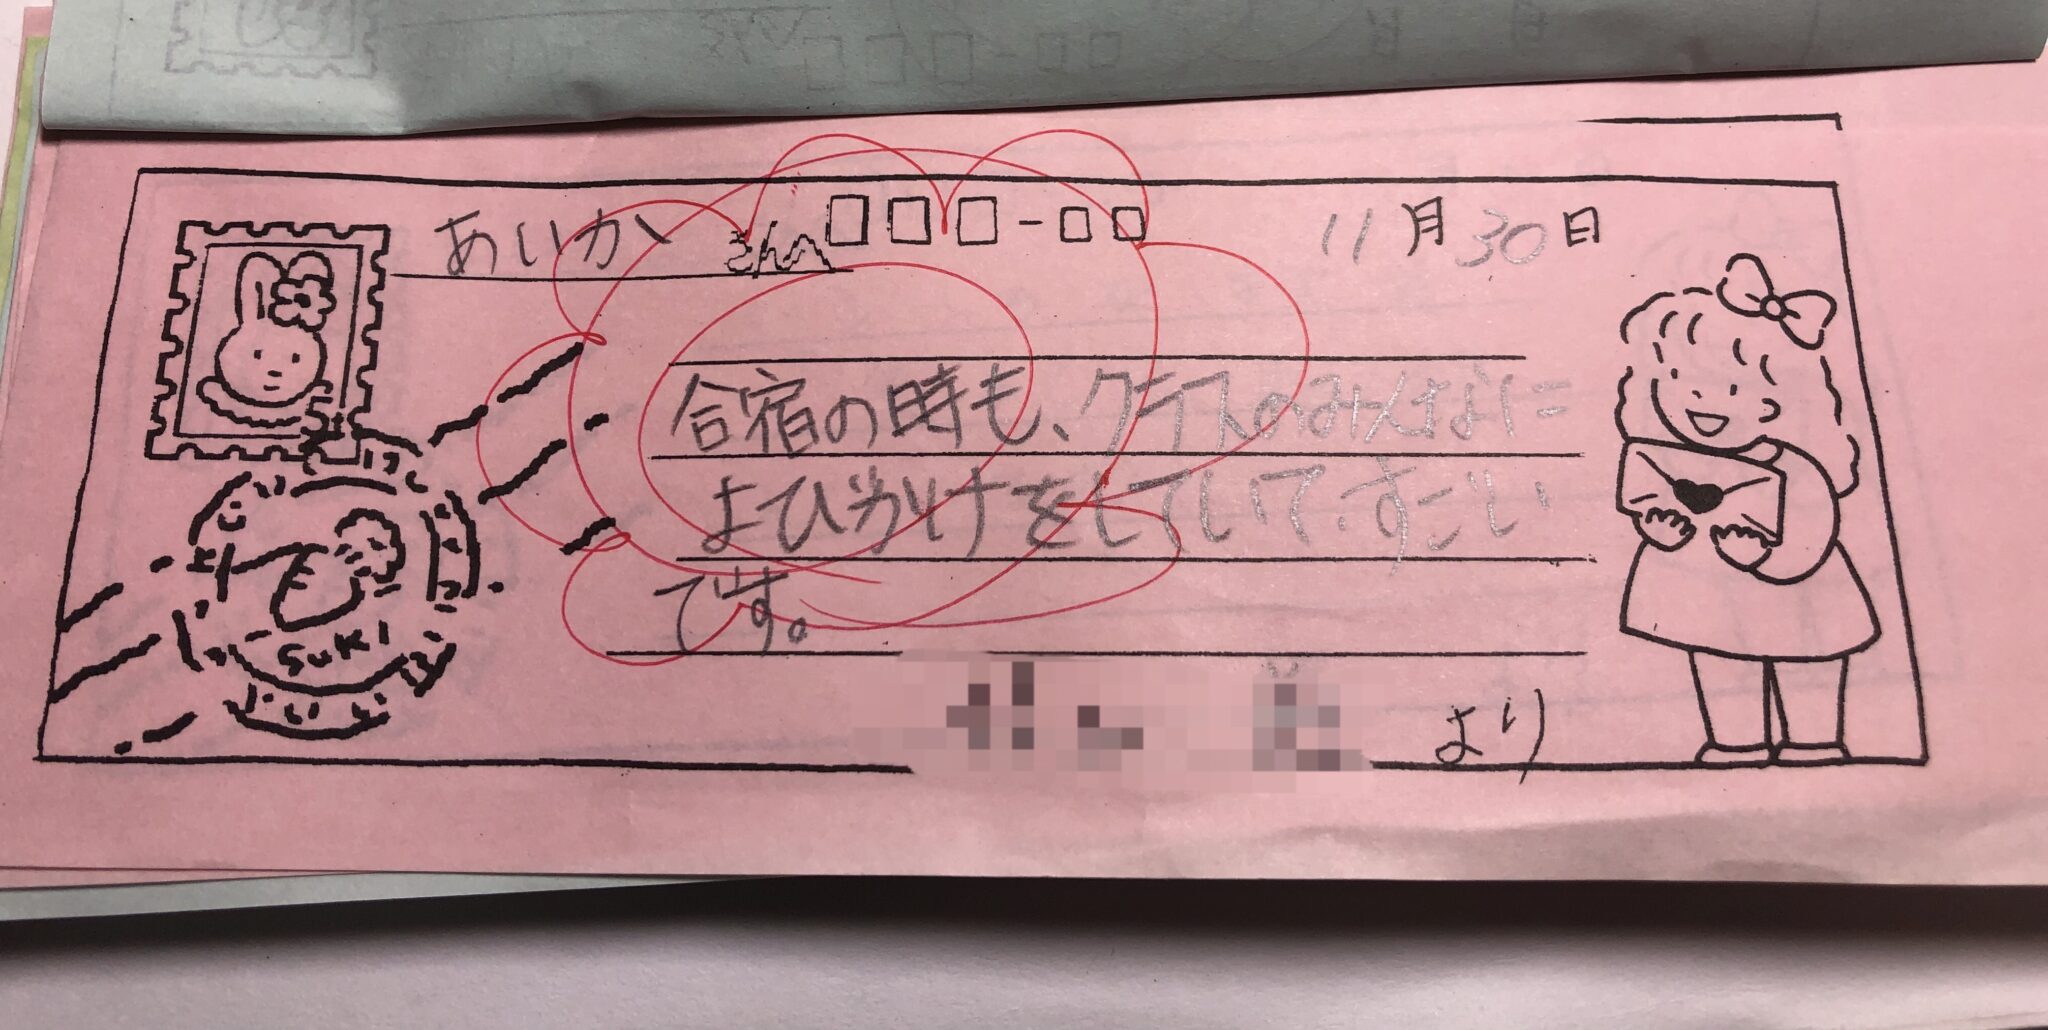 あいか さん □□□-□□ 11月30日
合宿の時も、クラスのみんなに
よびかけをしていて、すごい
です。
より
SUKI